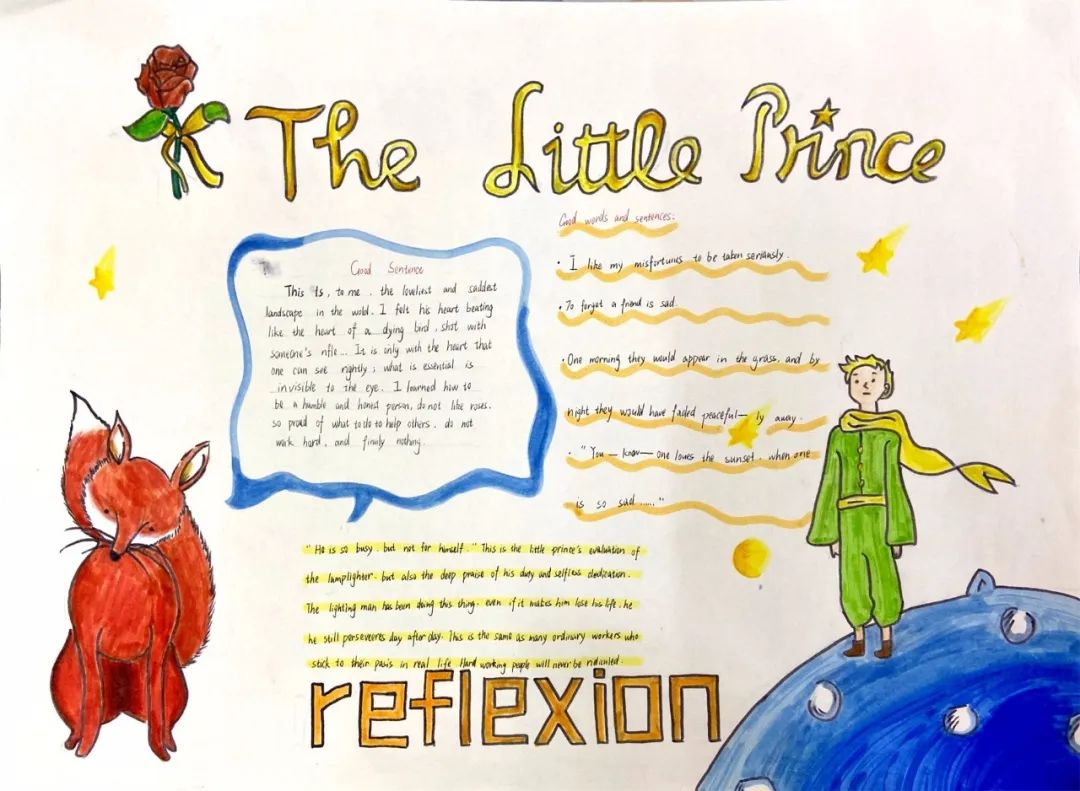 The Little Prince
Good Sentence
This is, to me, the loveliest and saddest
landscape in the wold. I felt his heart beating
like the heart of a dying bird, shot with
someone's rifle... It is only with the heart that
one can see rightly; what is essential is
invisible to the eye. I learned how to
be a humble and honest person, do not like roses.
so proud of what to do to help others. do not
work hard, and finaly nothing.
Good words and sentences:
· I like my misfortunes to be taken seriously.
· To forget a friend is sad.
· One morning they would appear in the grass, and by
night they would have faded peaceful—ly away.
· "You—know—one loves the sunset, when one
is so sad ......"
"He is so busy. but not for himself." This is the little prince's evaluation of
the lamplighter. but also the deep praise of his duty and selfless dedication.
The lighting man has been doing this thing. even if it makes him lose his life. he
he still perseveres day after day. This is the same as many ordinary workers who
stick to their in real life Hard working people will never be ridiculed.
reflexion